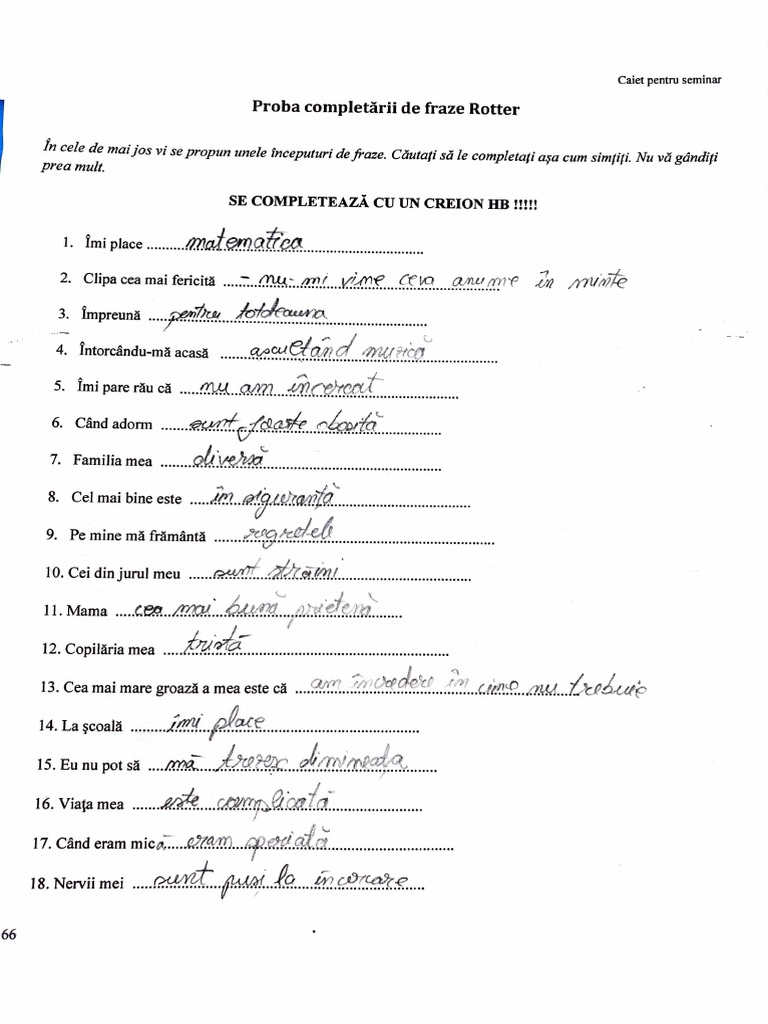 Caiet pentru seminar
Proba completării de fraze Rotter
În cele de mai jos vi se propun unele începuturi de fraze. Căutați să le completați așa cum simțiți. Nu vă gândiți
prea mult.
SE COMPLETEAZĂ CU UN CREION HB !!!!!
1. Îmi place .........matematica
2. Clipa cea mai fericită ......- nu-mi vine ceva anume în minte
3. Împreună ....pentru totdeauna
4. Întorcându-mă acasă .......ascultând muzică
5. Îmi pare rău că ....nu am încercat
6. Când adorm .....sunt foarte obosită
7. Familia mea .......diversă
8. Cel mai bine este ....în siguranță
9. Pe mine mă frământă ......regretele
10. Cei din jurul meu .....sunt străini
11. Mama ....cea mai bună prietenă
12. Copilăria mea .....tristă
13. Cea mai mare groază a mea este că ...am încredere în cine nu trebuie
14. La școală ........îmi place
15. Eu nu pot să ...mă trezesc dimineața
16. Viața mea ......este complicată
17. Când eram mică eram speriată
18. Nervii mei .....sunt puși la încercare
66